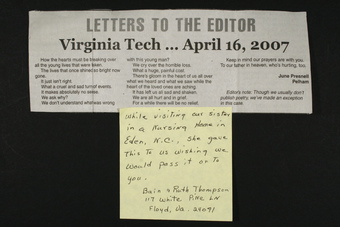 LETTERS TO THE EDITOR
Virginia Tech ... April 16, 2007
How the hearts must be breaking over
all the young lives that were taken.
The lives that once shined so bright now
gone.
It just isn't right.
What a cruel and sad turn of events.
It makes absolutely no sense.
We ask why?
We don't understand what was wrong
with this young man?
We cry over the horrible loss.
What a huge, painful cost.
There's gloom in the heart of us all over
what we heard and what we saw while the
heart of the loved ones are aching.
It has left us all sad and shaken.
We are all hurt and in grief.
For a while there will be no relief.
Keep in mind our prayers are with you.
To our father in heaven, who's hurting, too.
June Presnell
Pelham
Editor's note: Though we usually don't
publish poetry, we've made an exception
in this case.
While visiting our sister
in a Nursing Home in
Eden, N.C., she gave
this to us wishing we
would pass it on to
you.
Bain & Ruth Thompson
117 White Pine LN
Floyd, Va. 24091